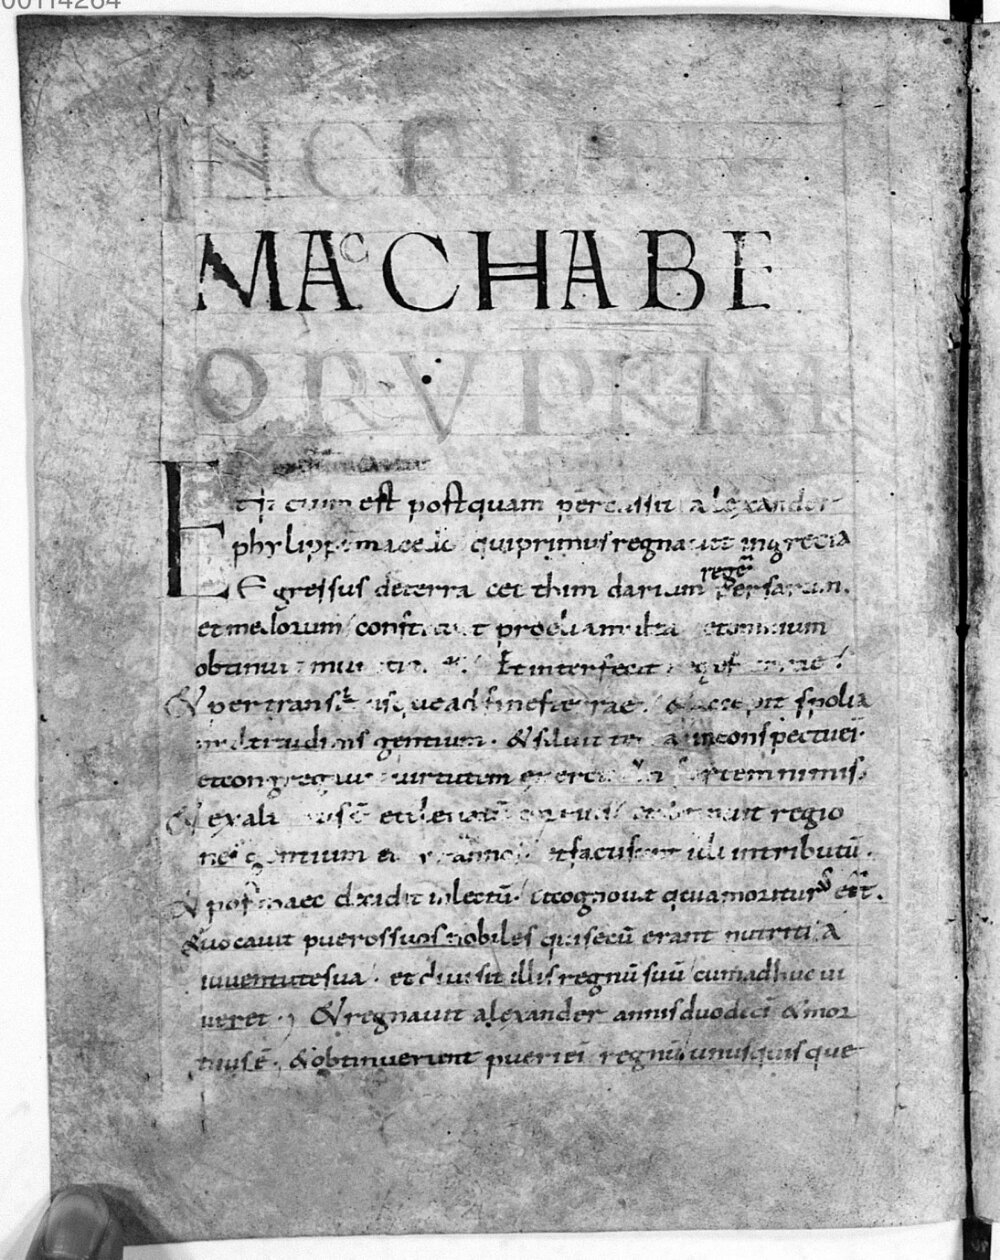 INCIPIT LIBE
MAcCHABE
ORV PRIM
Et factum est postquam percussit alexander
phylippi macedo qui primus regnavit in grecia
Egressus de terra cet thim darium regē persarum.
et medorum constituit proelia multa et omnium
obtinuit munitiones Et interfecit reges terrae
& pertransiit usque ad fines terrae. & accepit spolia
multitudinis gentium. & siluit terra in conspectu ei
et congregavit virtutem & exercitum fortem nimis.
& exaltatus ē et elevatū cor eius et obtinuit regio
nes gentium et tyrannos et facti sunt illi in tributū.
& post haec decidit in lectū. et cognovit quia moritur
& vocavit pueros suos nobiles qui secū erant nutriti A
iuventute sua. et divisit illis regnū suū cum adhuc vi
veret. & regnavit alexander annis duodeci & mor
tuus ē. & obtinuerunt pueri ei regnū unusquisque